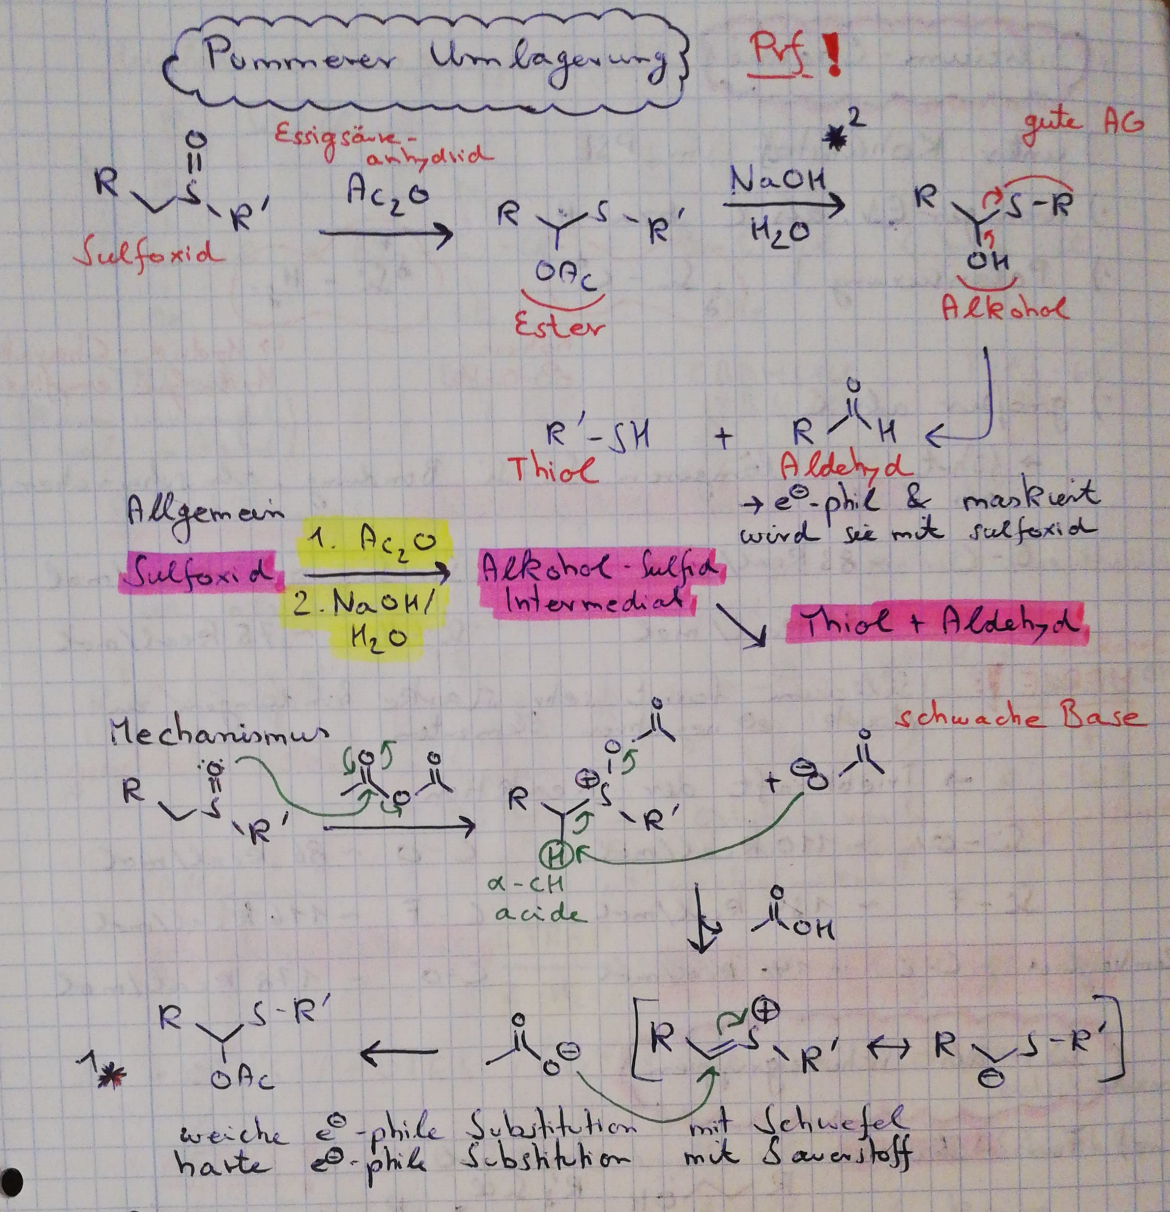 Pummerer Umlagerung
Prf!
Essigsäure-
anhydrid
O
R S R'
Sulfoxid
Ac₂O
R S-R'
OAc
Ester
*2
NaOH
H₂O
gute AG
R S-R
OH
Alkohol
R'-SH + R O H
Thiol
Aldehyd
→ e⊖-phil & maskiert
wird sie mit sulfoxid
Allgemein
Sulfoxid
1. Ac₂O
2. NaOH/
H₂O
Alkohol-Sulfid
Intermediat
Thiol + Aldehyd
Mechanismus
schwache Base
O
R S R'
O O O
O
O
R ⊕ S R'
H
+ ⊖O O
α-CH
acide
O
OH
R S-R'
OAc
1*
O
O⊖
[R S⊕ R' ↔ R ⊖ S-R']
weiche e⊖-phile Substitution mit Schwefel
harte e⊖-phile Substitution mit Sauerstoff